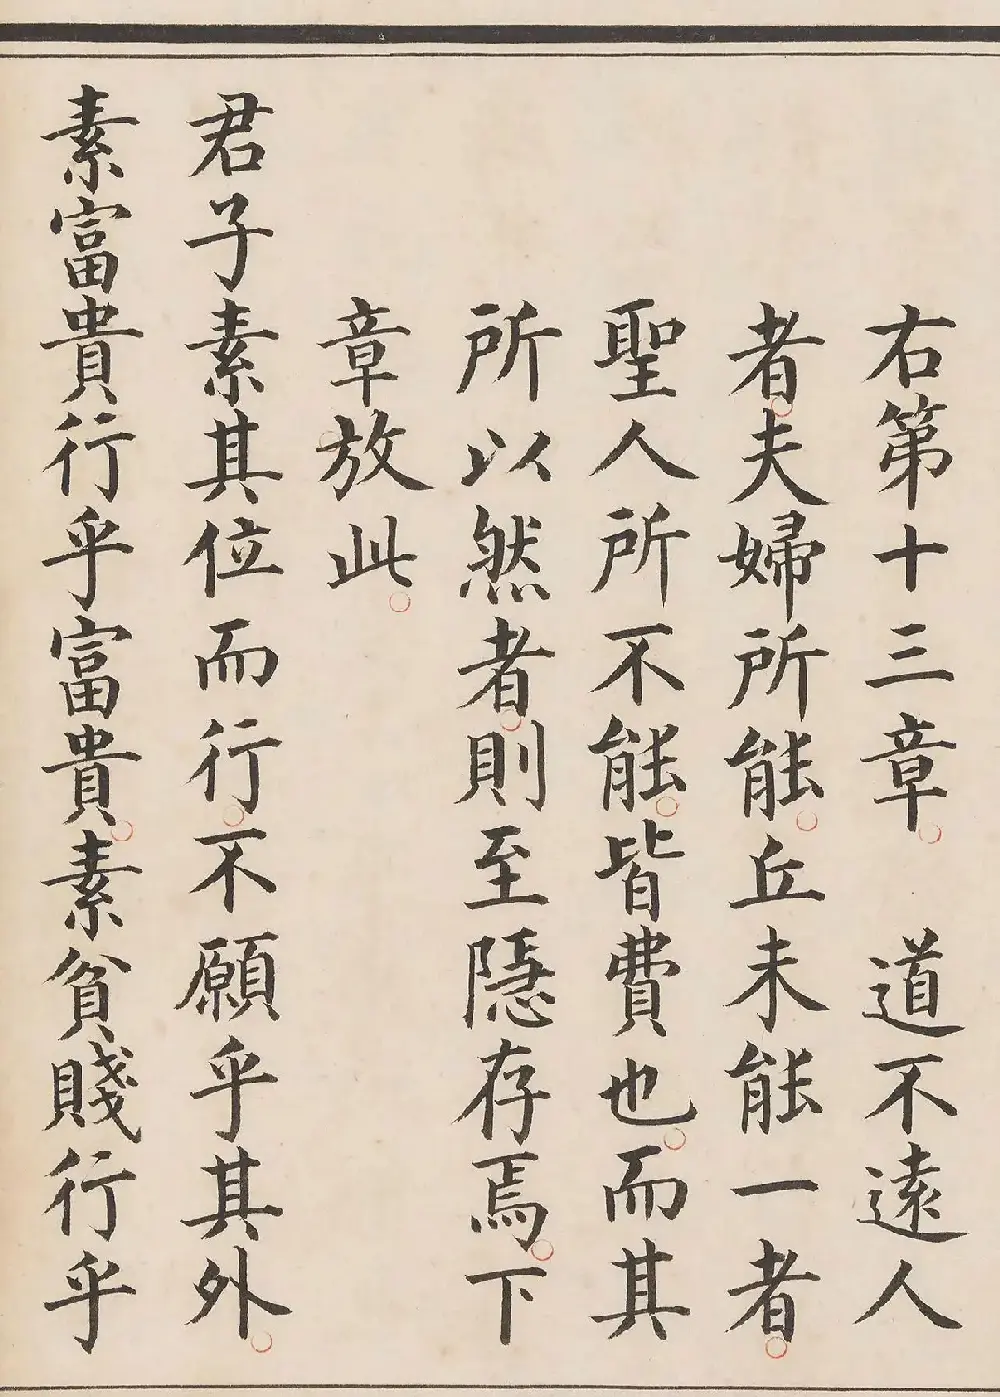 右第十三章。　道不遠人
者。夫婦所能。丘未能一者。
聖人所不能。皆費也。而其
所以然者。則至隱存焉。下
章放此。
君子素其位而行。不願乎其外。
素富貴行乎富貴。素貧賤行乎